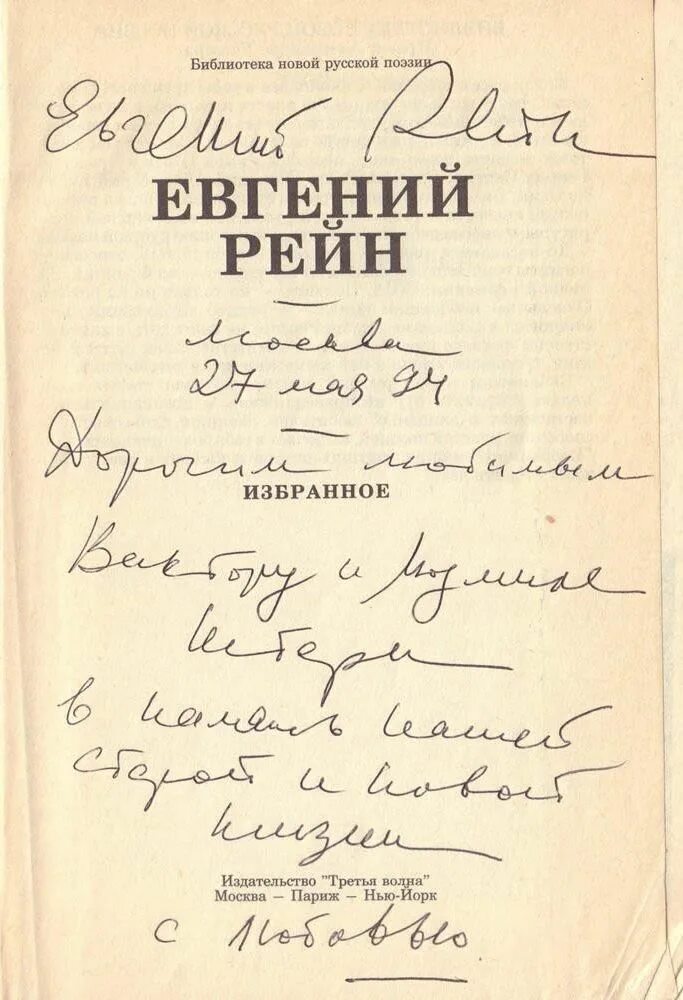 Библиотека новой русской поэзии
Евгений Рейн
ЕВГЕНИЙ
РЕЙН
Москва
27 мая 94
Дорогим любимым
ИЗБРАННОЕ
Виктору и Людмиле
в память нашей
старой и новой
жизни
Издательство "Третья волна"
Москва — Париж — Нью-Йорк
с любовью